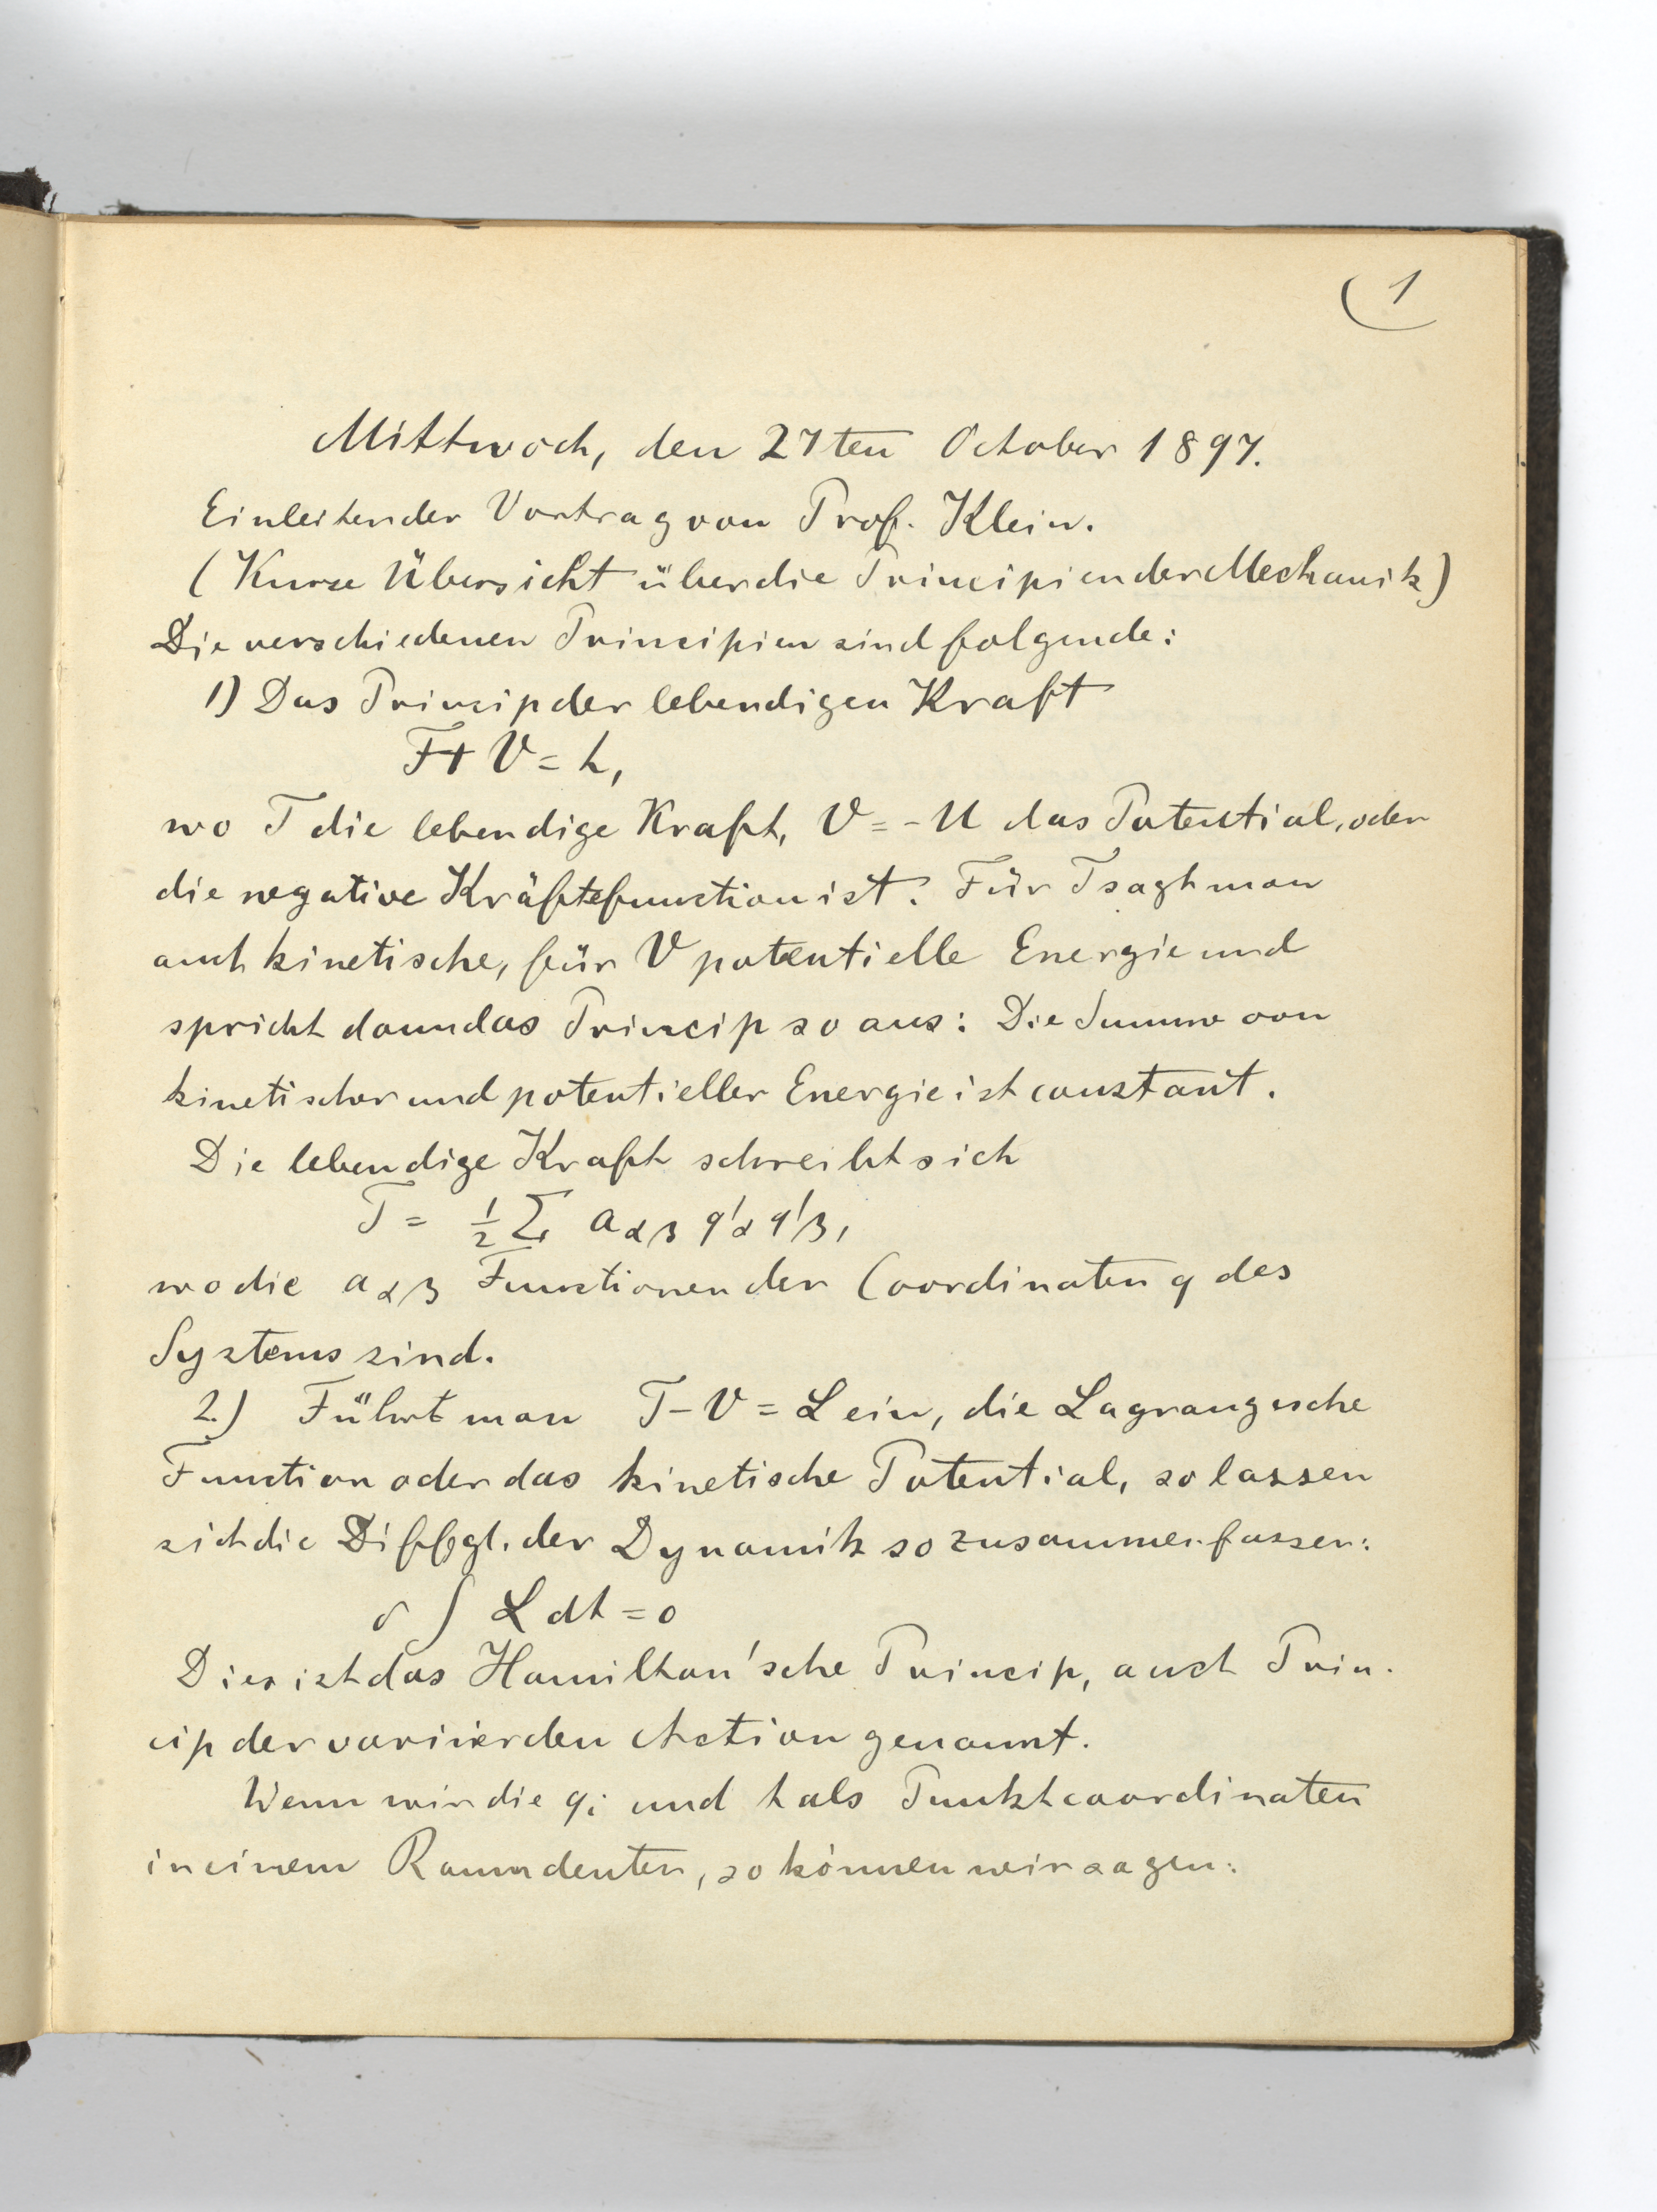 1
Mittwoch, den 27ten October 1897.
Einleitender Vortrag von Prof. Klein.
(Kurze Übersicht über die Principien der Mechanik)
Die verschiedenen Principien sind folgende:
1) Das Princip der lebendigen Kraft
T + V = h,
wo T die lebendige Kraft, V = -U das Potential, oder
die negative Kräftefunction ist. Für T sagt man
auch kinetische, für V potentielle Energie und
spricht dann das Princip so aus: Die Summe von
kinetischer und potentieller Energie ist constant.
Die lebendige Kraft schreibt sich
T = ½ Σ aαβ q'α q'β,
wo die aαβ Functionen der Coordinaten q des
Systems sind.
2.) Führt man T - V = L ein, die Lagrangesche
Function oder das kinetische Potential, so lassen
sich die Diffgl. der Dynamik so zusammenfassen:
δ ∫ L dt = 0
Dies ist das Hamilton'sche Princip, auch Prin-
cip der variierden Action genannt.
Wenn wir die qi und t als Punktcoordinaten
in einem Raum deuten, so können wir sagen: